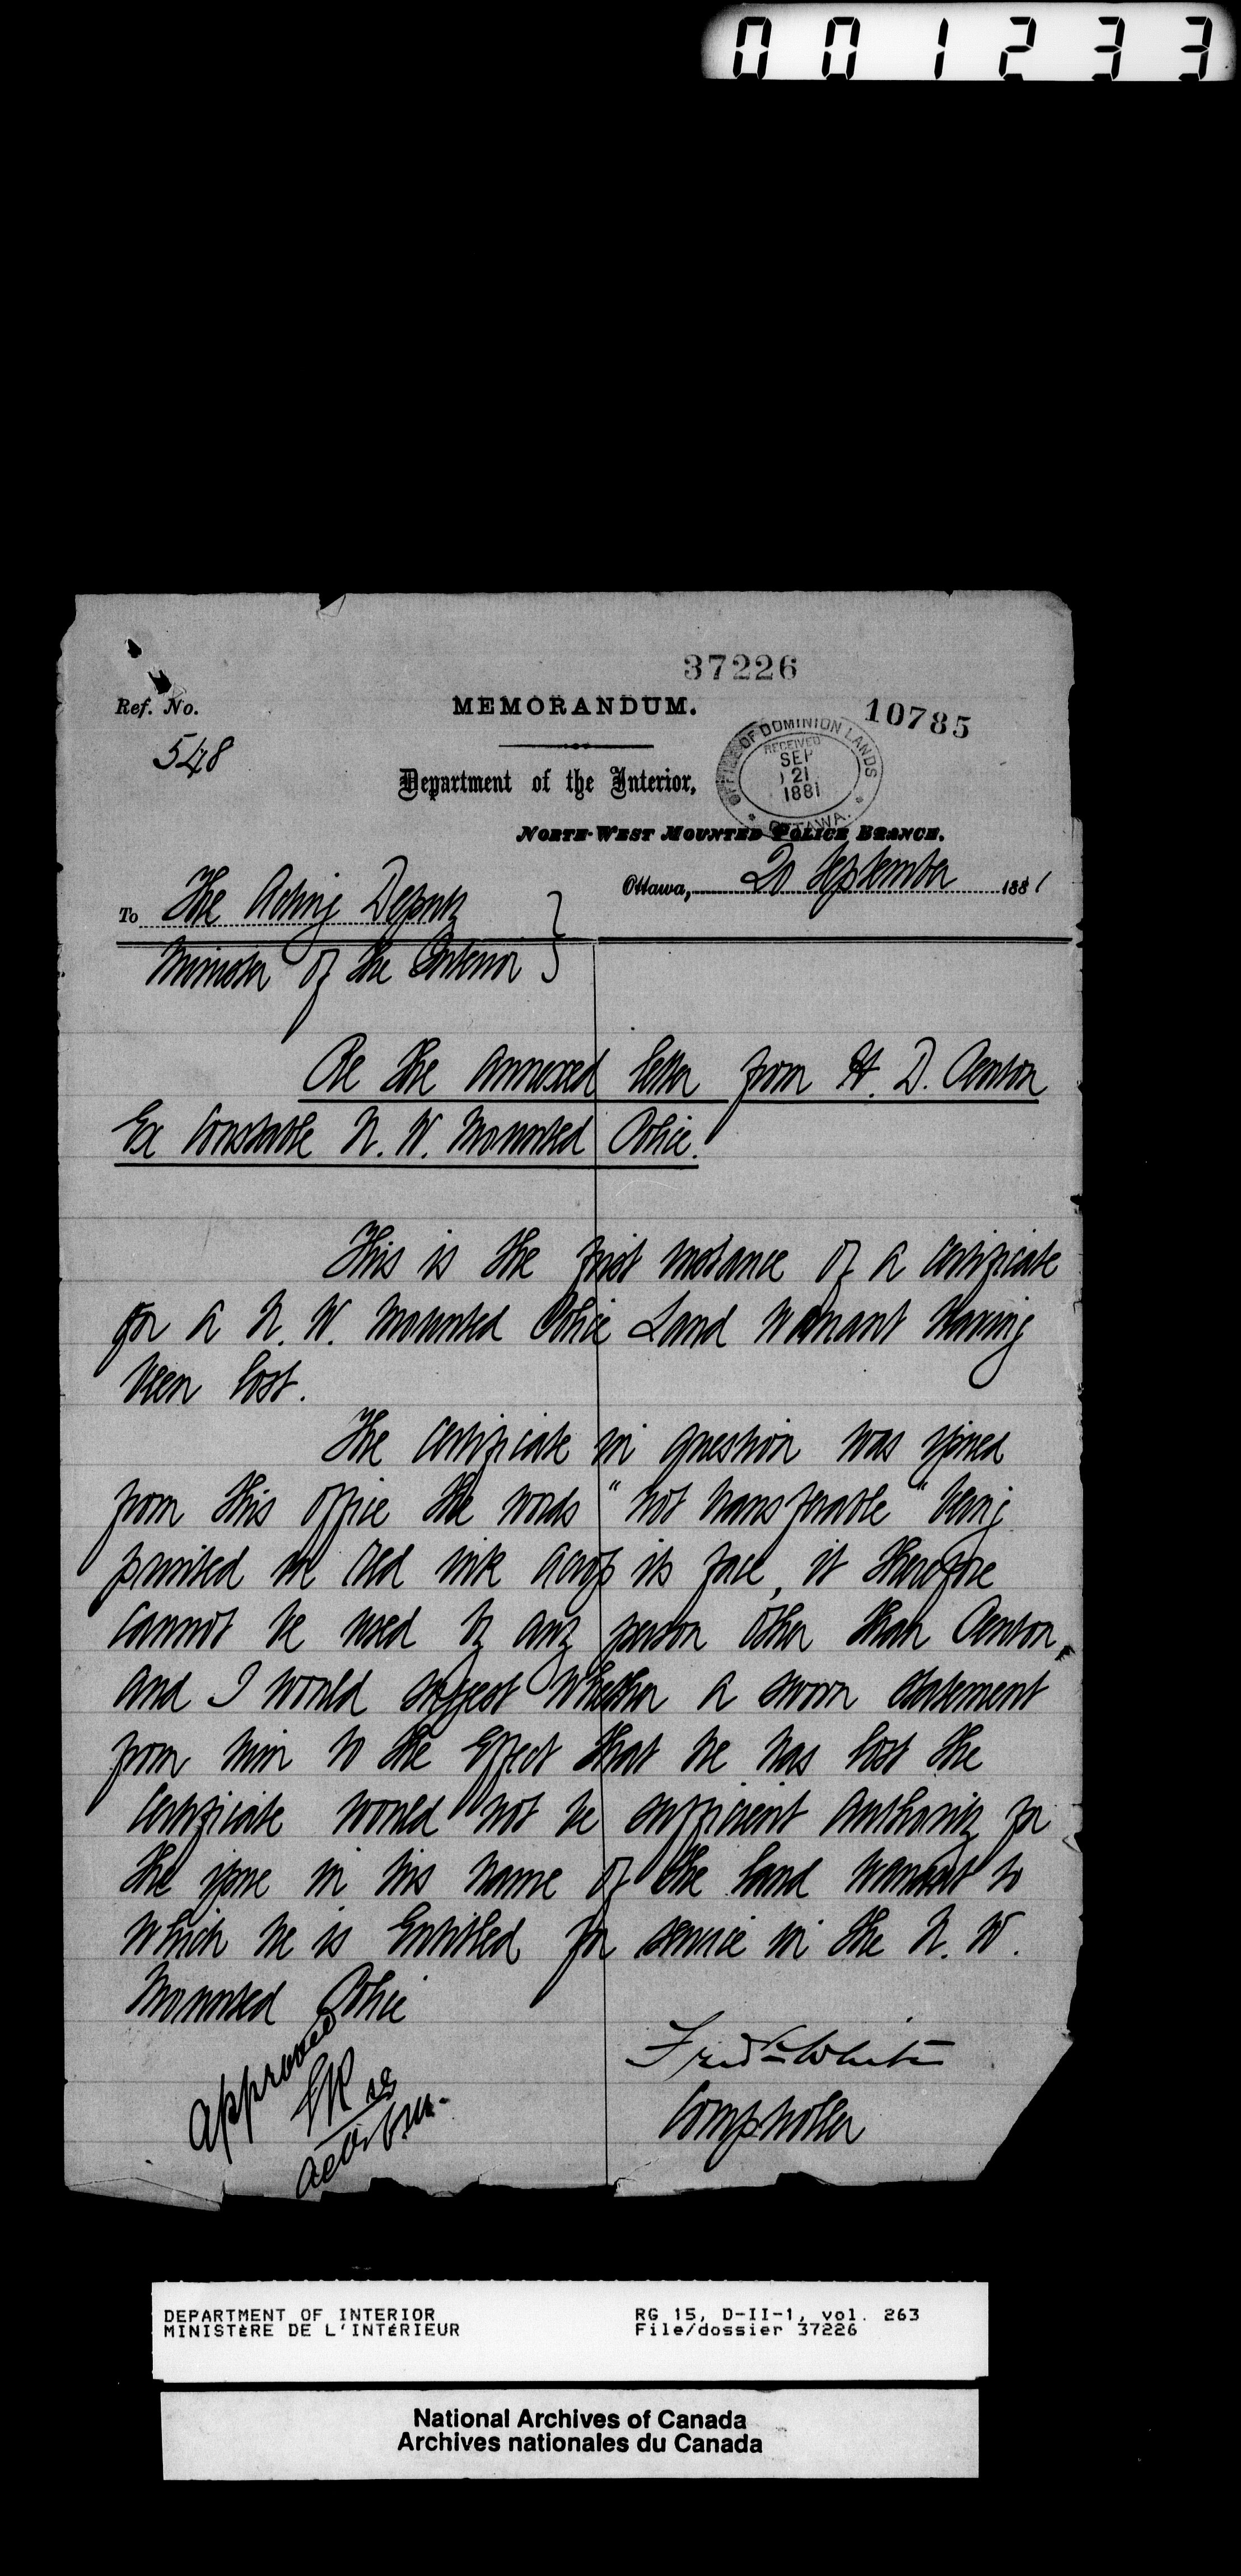 001233
37226
Ref. No.
MEMORANDUM.
10785
548
OFFICE OF DOMINION LANDS
RECEIVED
SEP
21
1881
OTTAWA.
Department of the Interior,
NORTH-WEST MOUNTED POLICE BRANCH.
Ottawa, 20 September 1881
To The Acting Deputy
Minister of the Interior
Re the annexed letter from H. D.
Ex Constable N. W. Mounted Police.
This is the first instance of a certificate
for a N. W. Mounted Police Land Warrant having
been lost.
The certificate in question was issued
from this office the words "not transferable" being
printed in red ink across its face, it therefore
cannot be used by any person other than
and I would suggest whether a sworn statement
from him to the effect that he has lost the
certificate would not be sufficient authority for
the issue in his name of the land warrant to
which he is Entitled for service in the N. W.
Mounted Police
Fredk White
Comptroller
approved
DEPARTMENT OF INTERIOR
MINISTÈRE DE L'INTÉRIEUR
RG 15, D-II-1, vol. 263
File/dossier 37226
National Archives of Canada
Archives nationales du Canada